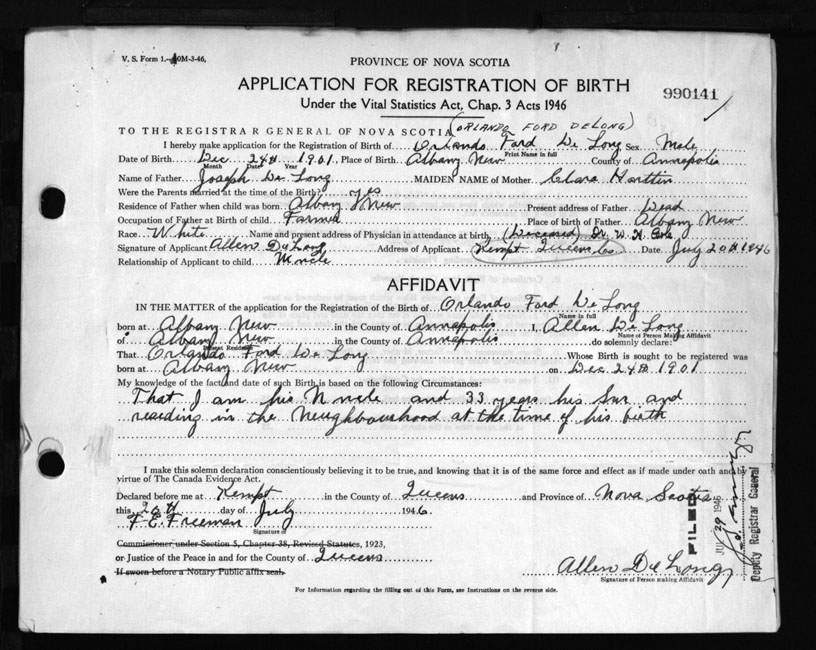 V. S. Form 1.—10M-3-46.
PROVINCE OF NOVA SCOTIA
APPLICATION FOR REGISTRATION OF BIRTH
990141
Under the Vital Statistics Act, Chap. 3 Acts 1946
(ORLANDO FORD DELONG)
TO THE REGISTRAR GENERAL OF NOVA SCOTIA
I hereby make application for the Registration of Birth of Orlando Ford De Long Sex Male
Print Name in full
Date of Birth Dec 24th 1901, Place of Birth Albany New County of Annapolis
Month Date Year
Name of Father Joseph De Long MAIDEN NAME of Mother Clara Harttin
Were the Parents married at the time of the Birth? yes
Residence of Father when child was born Albany New Present address of Father Dead
Occupation of Father at Birth of child Farmer Place of birth of Father Albany New
Race White Name and present address of Physician in attendance at birth (Deceased) Dr. W. H. Cole
Signature of Applicant Allen De Long Address of Applicant Kempt Queens Co Date July 20th 1946
Relationship of Applicant to child Uncle
AFFIDAVIT
IN THE MATTER of the application for the Registration of the Birth of Orlando Ford De Long
Name in full
born at Albany New in the County of Annapolis I, Allen De Long
Name of Person Making Affidavit
of Albany New in the County of Annapolis do solemnly declare:
Present Residence
That Orlando Ford De Long Whose Birth is sought to be registered was
born at Albany New on Dec 24th 1901
My knowledge of the fact and date of such Birth is based on the following Circumstances:
That I am his Uncle and 33 years his Snr and
reseding in the Neughbourhood at the time of his birth
I make this solemn declaration conscientiously believing it to be true, and knowing that it is of the same force and effect as if made under oath and by
virtue of The Canada Evidence Act.
Declared before me at Kempt in the County of Queens and Province of Nova Scotia
this 20th day of July 1946.
F. E. Freeman
Signature of
Commissioner under Section 5, Chapter 38, Revised Statutes, 1923,
or Justice of the Peace in and for the County of Queens
If sworn before a Notary Public affix seal.
Allen De Long
Signature of Person making Affidavit
FILED
JUL 29 1946
Deputy Registrar General
For Information regarding the filling out of this Form, see Instructions on the reverse side.